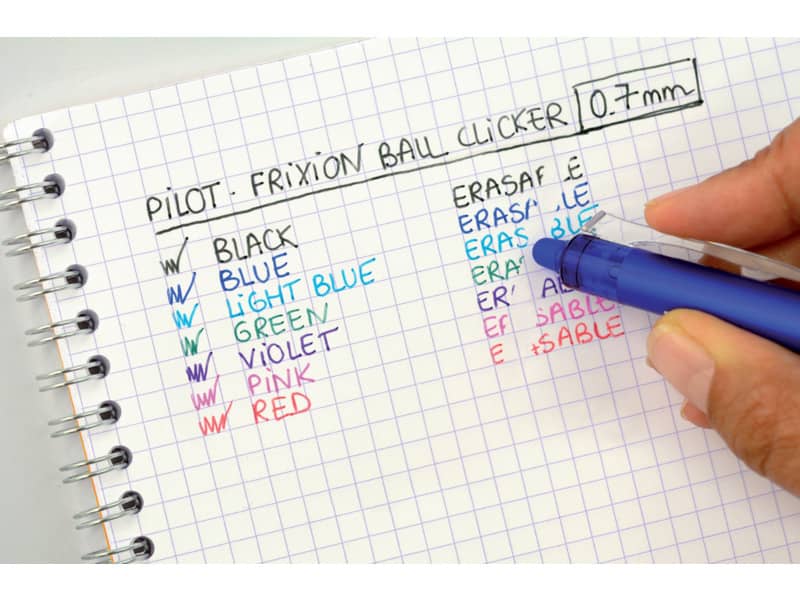 PILOT. FRIXION BALL CLICKER 0.7mm
BLACK
BLUE
LIGHT BLUE
GREEN
VIOLET
PINK
RED
ERASA LE
ERASA LE
ERAS BLE
ERA
ER A
E SABLE
E SABLE